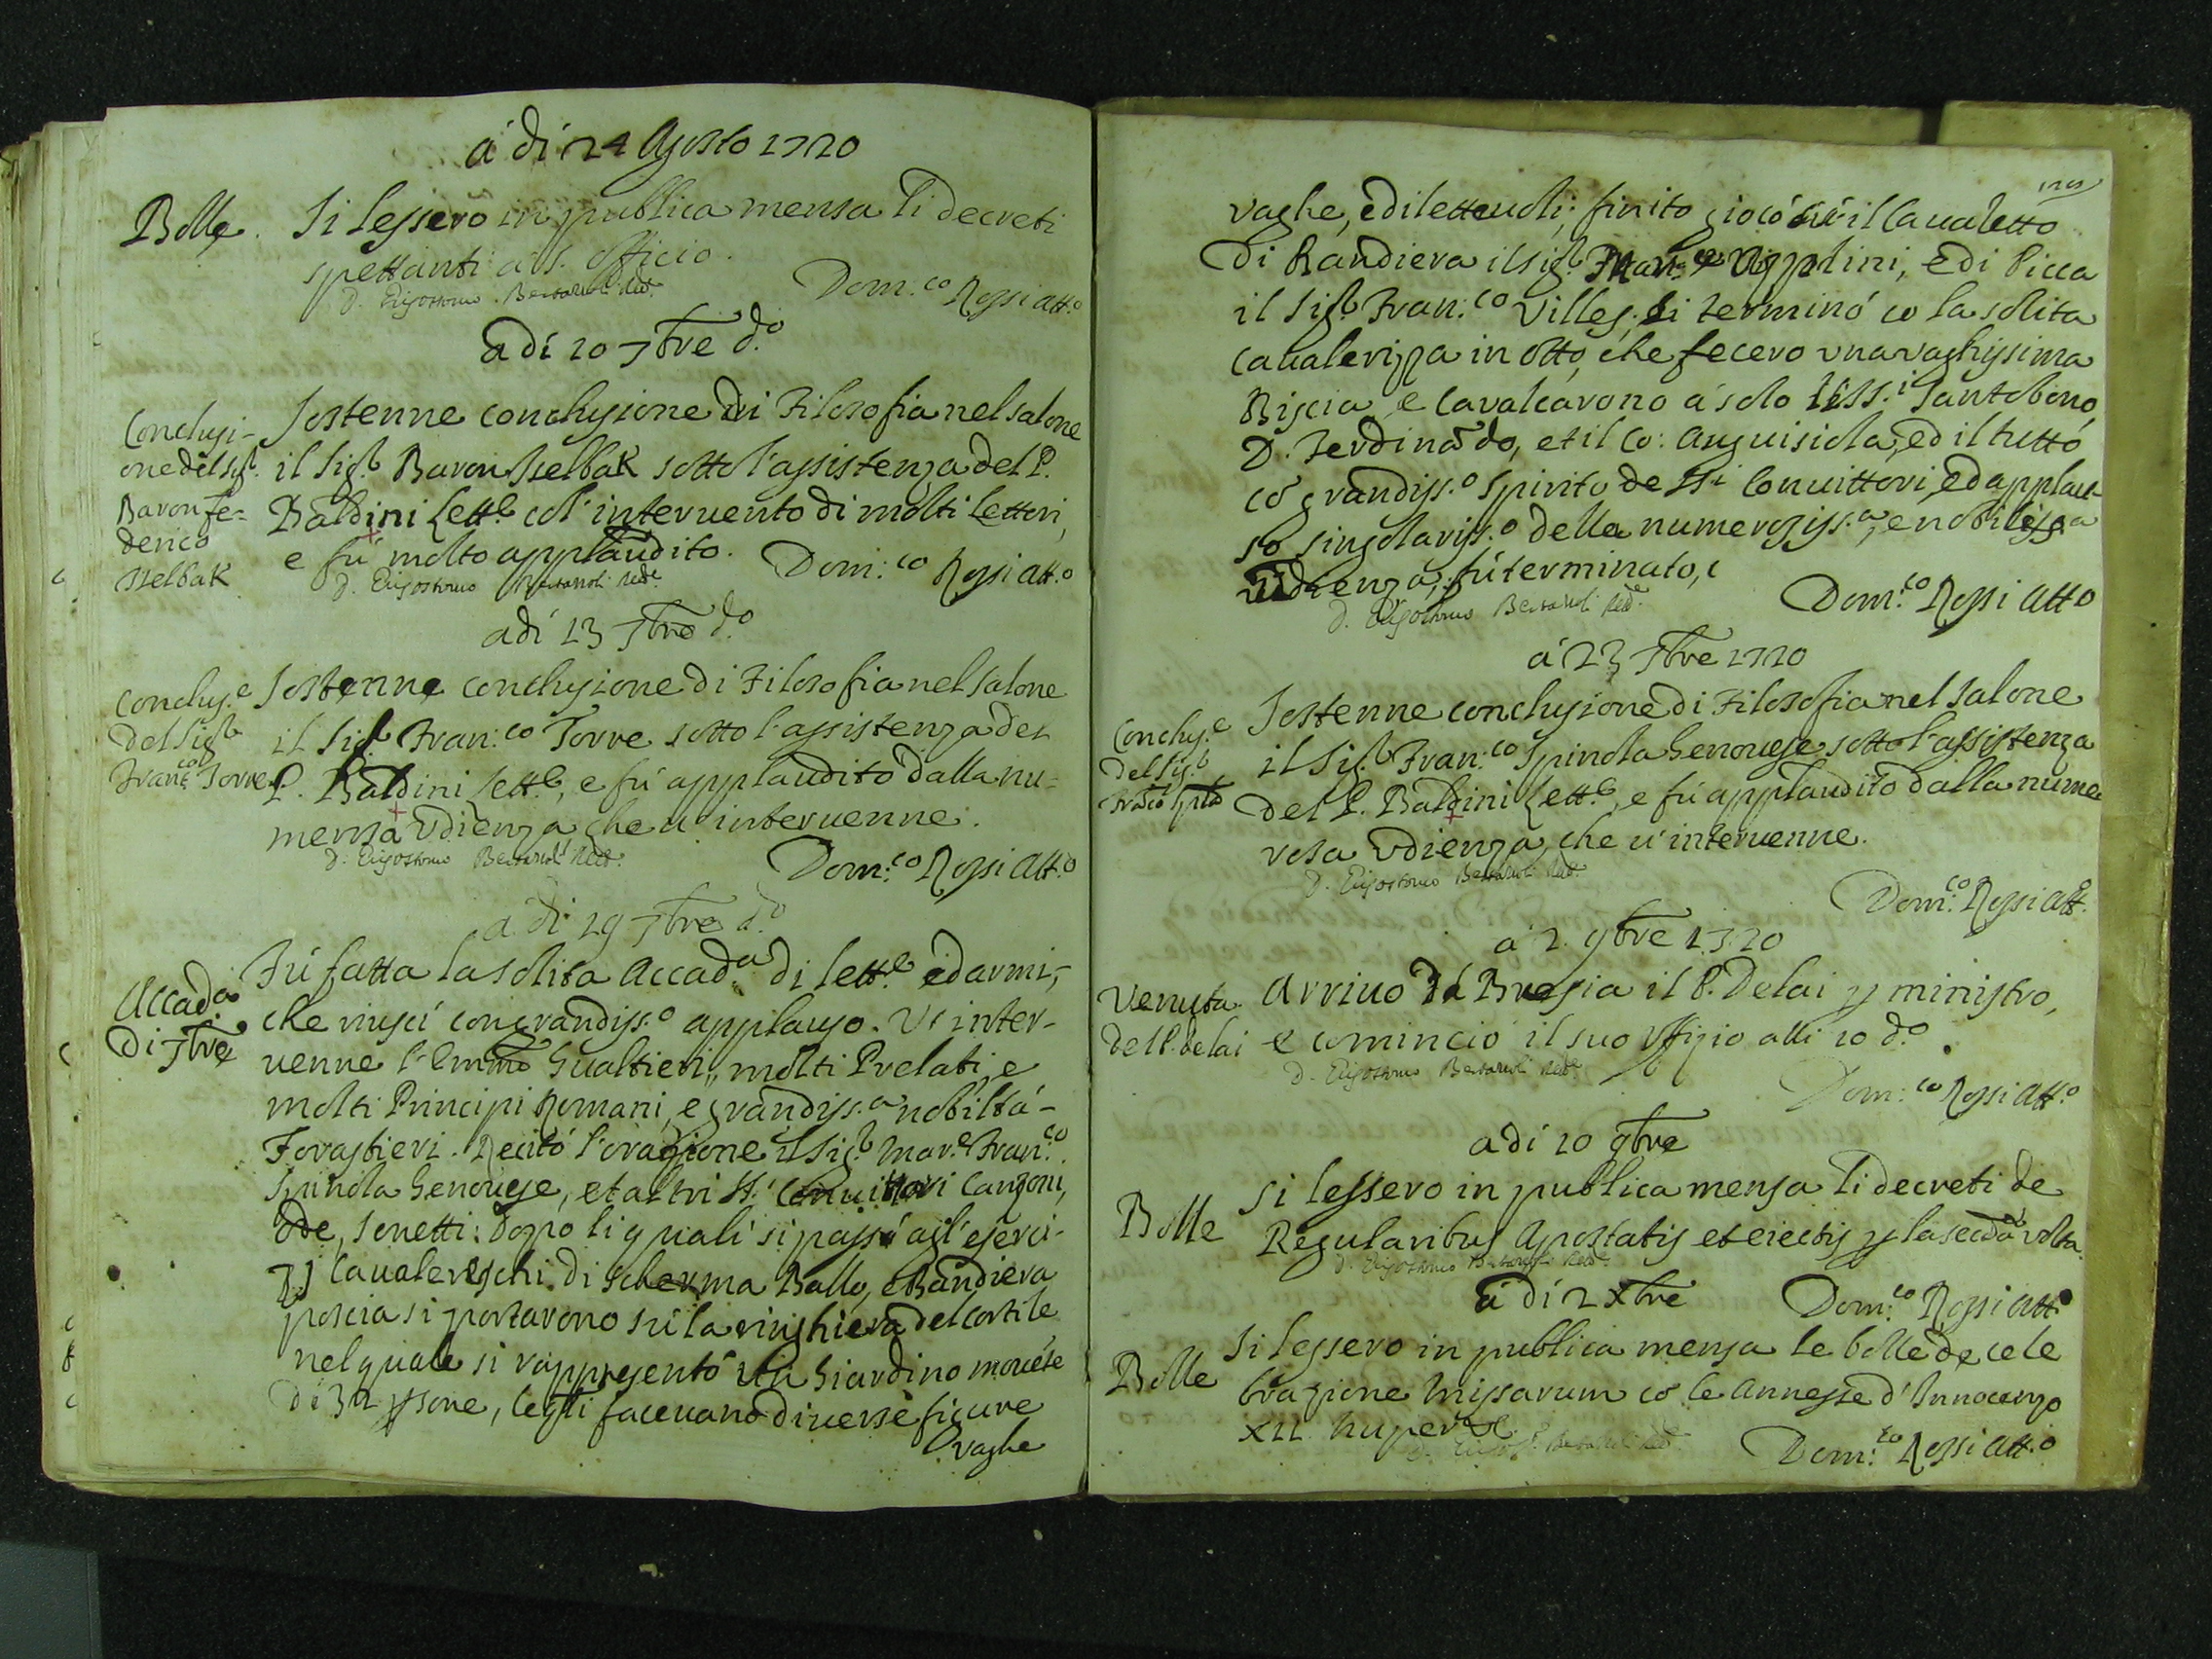 á dí 24 Agosto 1720
Bolle. Si lessero in publica mensa li decreti
spettanti al S. Officio.
D. Grisostomo Bertazoli Ret.e Dom:co Rossi Att.o
adí 10 7bre d.o
Conclusi-
one del Sig.r
Baron Fe-
derico
Stelbak
Sostenne conclusione di Filosofia nel salone
il Sig.r Baron Stelbak sotto l'assistenza del P.
Baldini Lett.e col' interuento di molti Lettori,
e fú molto applaudito.
D. Grisostomo Bertazoli Ret.e Dom:co Rossi Att.o
adí 13 7bre d.o
Conclus.e
del Sig.r
Franc.co Torre
Sostenne conclusione di Filosofia nel salone
il Sig.r Fran:co Torre sotto l'assistenza del
P. Baldini Lett.e, e fú applaudito dalla nu-
merosa Vdienza che u' interuenne.
D. Grisostomo Bertazoli Ret.e Dom:co Rossi Att.o
a dí 19 7bre d.o
Accad.a
di 7bre
Fú fatta la solita Accad.a di lett.e ed armi,
che riuscí con grandiss.o applauso. Vi inter-
uenne l'Emmo Gualtieri, molti Prelati, e
molti Principi Romani, e grandiss.a nobiltá
Forastieri. Recitó l'orazione il Sig.r Mar.e Fran.co
Spinola Genouese, et altri SS.i Conuittori Canzoni,
Ode, Sonetti: dopo li quali si passó agl'eserci-
zij Caualereschi di Scherma Ballo, e Bandiera
poscia si portarono sú la ringhiera del cortile
nel quale si rappresentó un Giardino mouéte
di 32 psone, le qli faceuano diuerse figure
vaghe
vaghe, e diletteuoli; finito giocó il Caualetto
di Bandiera il Sig.r Appolini, e di Picca
il Sig.r Fran:co Villes, si terminó co la solita
Caualerizza in otto, che fecero una vaghissima
Biscia, e Cavalcarono á solo li SS.i Santobono,
D. Ferdinãdo, et il Co: Anguisiola, ed il tutto
cõ grandiss.o Spirito de SSi Conuittori, ed applau-
so singolariss.o della numerosiss.a, e nobiliss.a
udienza, fú terminato,
D. Grisostomo Bertazoli Ret.e Dom:co Rossi Att.o
á 23 7bre 1720
Conclus.e
del Sig.r
Frãco Spla
Sostenne conclusione di Filosofia nel Salone
il Sig.r Fran:co Spinola Genouese sotto l'assistenza
del P. Baldini Lett.e, e fú applaudito dalla nume-
rosa vdienza, che u' interuenne.
D. Grisostomo Bertazoli Ret.e
Dom:co Rossi Att.o
á 2 9bre 1720
Venuta
del P. Delai
Arriuo da Bresia il P. Delai p ministro,
e cominció il suo Vffizio alli 10 d.o
D. Grisostomo Bertazoli Ret.e
Dom:co Rossi Att.o
adí 10 9bre
Bolle Si lessero in publica mensa li decreti de
Regularibus Apostatis et eiectis p la secda volta.
D. Grisostomo Bertazoli Ret.e
á dí 2 Xbre Dom:co Rossi Att.o
Bolle Si lessero in publica mensa le bolle de cele
brazione Missarum cõ le Annesse d'Innocenzo
XII. nuper &c.
D. Grisost.o Bertazoli Ret. Dom:co Rossi Att.o